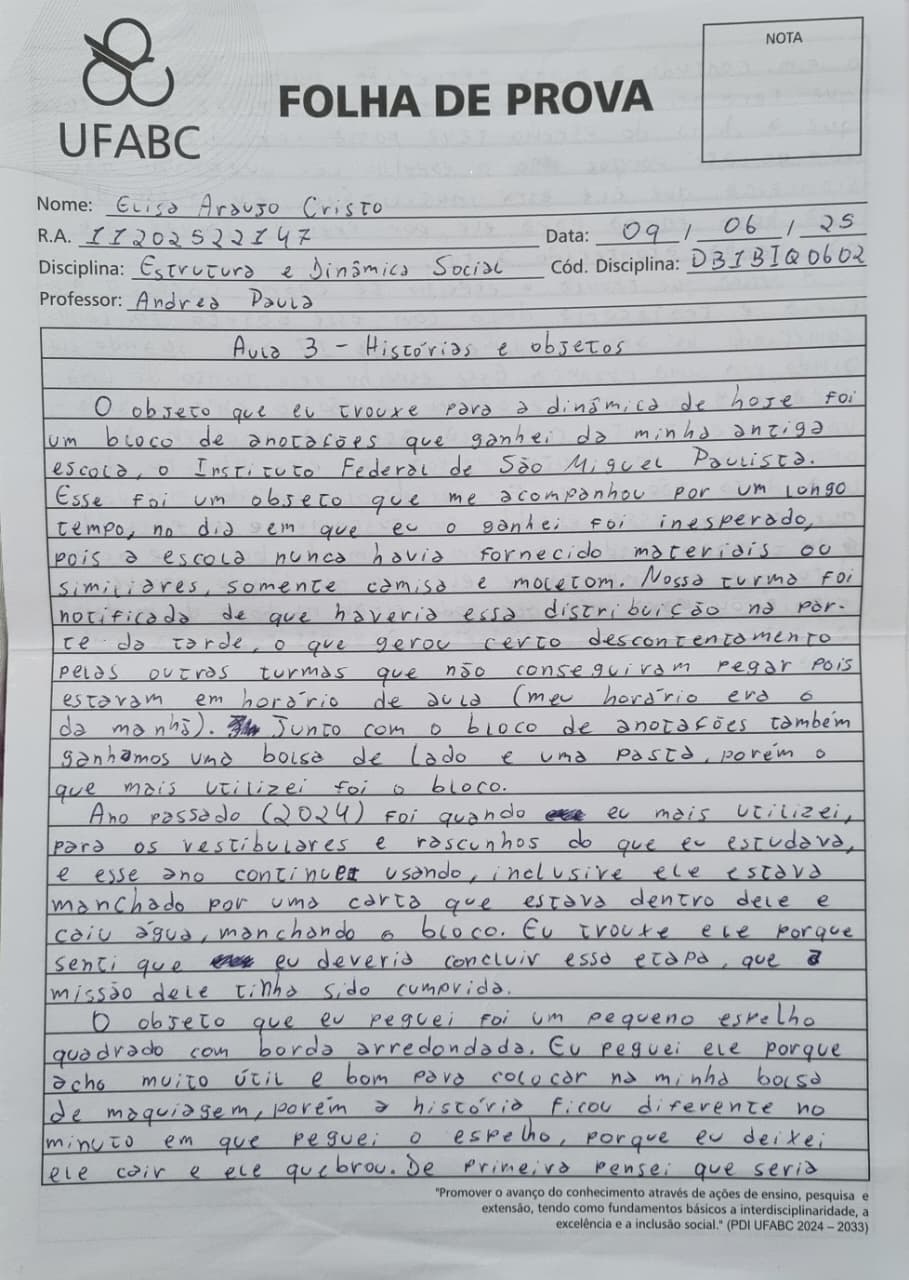 UFABC
FOLHA DE PROVA
NOTA
Nome: Elisa Araujo Cristo
R.A. 11202522147 Data: 09 / 06 / 25
Disciplina: Estrutura e Dinâmica Social Cód. Disciplina: DB1BIQ0602
Professor: Andrea Paula
Aula 3 - Histórias e objetos
O objeto que eu trouxe para a dinâmica de hoje foi
um bloco de anotações que ganhei da minha antiga
escola, o Instituto Federal de São Miguel Paulista.
Esse foi um objeto que me acompanhou por um longo
tempo, no dia em que eu o ganhei foi inesperado,
pois a escola nunca havia fornecido materiais ou
similiares, somente camisa e moletom. Nossa turma foi
notificada de que haveria essa distribuição na par-
te da tarde, o que gerou certo descontentamento
pelas outras turmas que não conseguiram pegar pois
estavam em horário de aula (meu horário era o
da manhã). Junto com o bloco de anotações também
ganhamos uma bolsa de lado e uma pasta, porém o
que mais utilizei foi o bloco.
Ano passado (2024) foi quando eu mais utilizei,
para os vestibulares e rascunhos do que eu estudava,
e esse ano continuei usando, inclusive ele estava
manchado por uma carta que estava dentro dele e
caiu água, manchando o bloco. Eu trouxe ele porque
senti que eu deveria concluir essa etapa, que a
missão dele tinha sido cumprida.
O objeto que eu peguei foi um pequeno espelho
quadrado com borda arredondada. Eu peguei ele porque
acho muito útil e bom para colocar na minha bolsa
de maquiagem, porém a história ficou diferente no
minuto em que peguei o espelho, porque eu deixei
ele cair e ele quebrou. De primeira pensei que seria
"Promover o avanço do conhecimento através de ações de ensino, pesquisa e
extensão, tendo como fundamentos básicos a interdisciplinaridade, a
excelência e a inclusão social." (PDI UFABC 2024 – 2033)